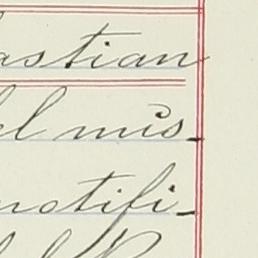 astian
el mis-
notifi-